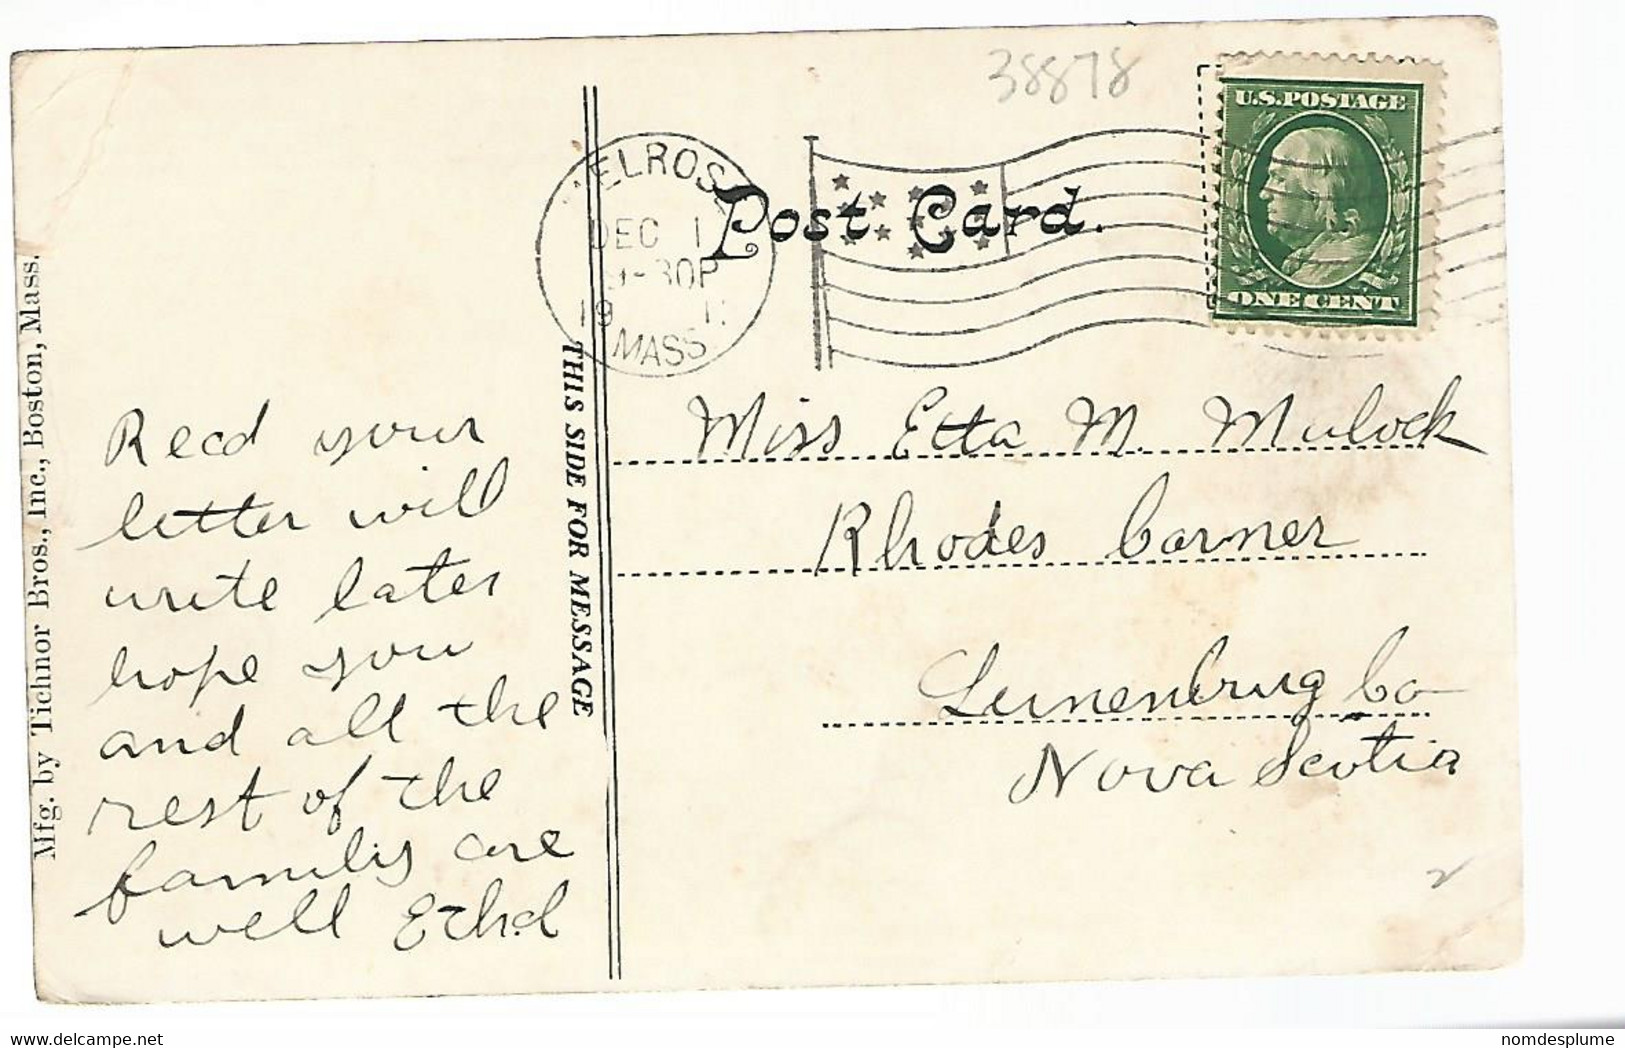 38878
U.S.POSTAGE
ONE CENT
ELROS
DEC 1
30P
19 1
MASS.
Post Card.
THIS SIDE FOR MESSAGE
Mfg. by Tichnor Bros., Inc., Boston, Mass.
Recd your
letter will
write later
hope you
and all the
rest of the
family are
well Ethel
Miss Etta M. Mulock
Rhodes Corner
Lunenburg Co
Nova Scotia
delcampe.net
nomdesplume